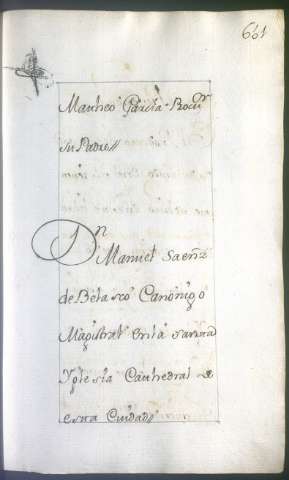 661
Matheo Garcia Procur
su Padre
Dn
Manuel Saenz
de Belasco Canonigo
Magistral en la Santa
Yglesia Cathedral de
esta Ciudad